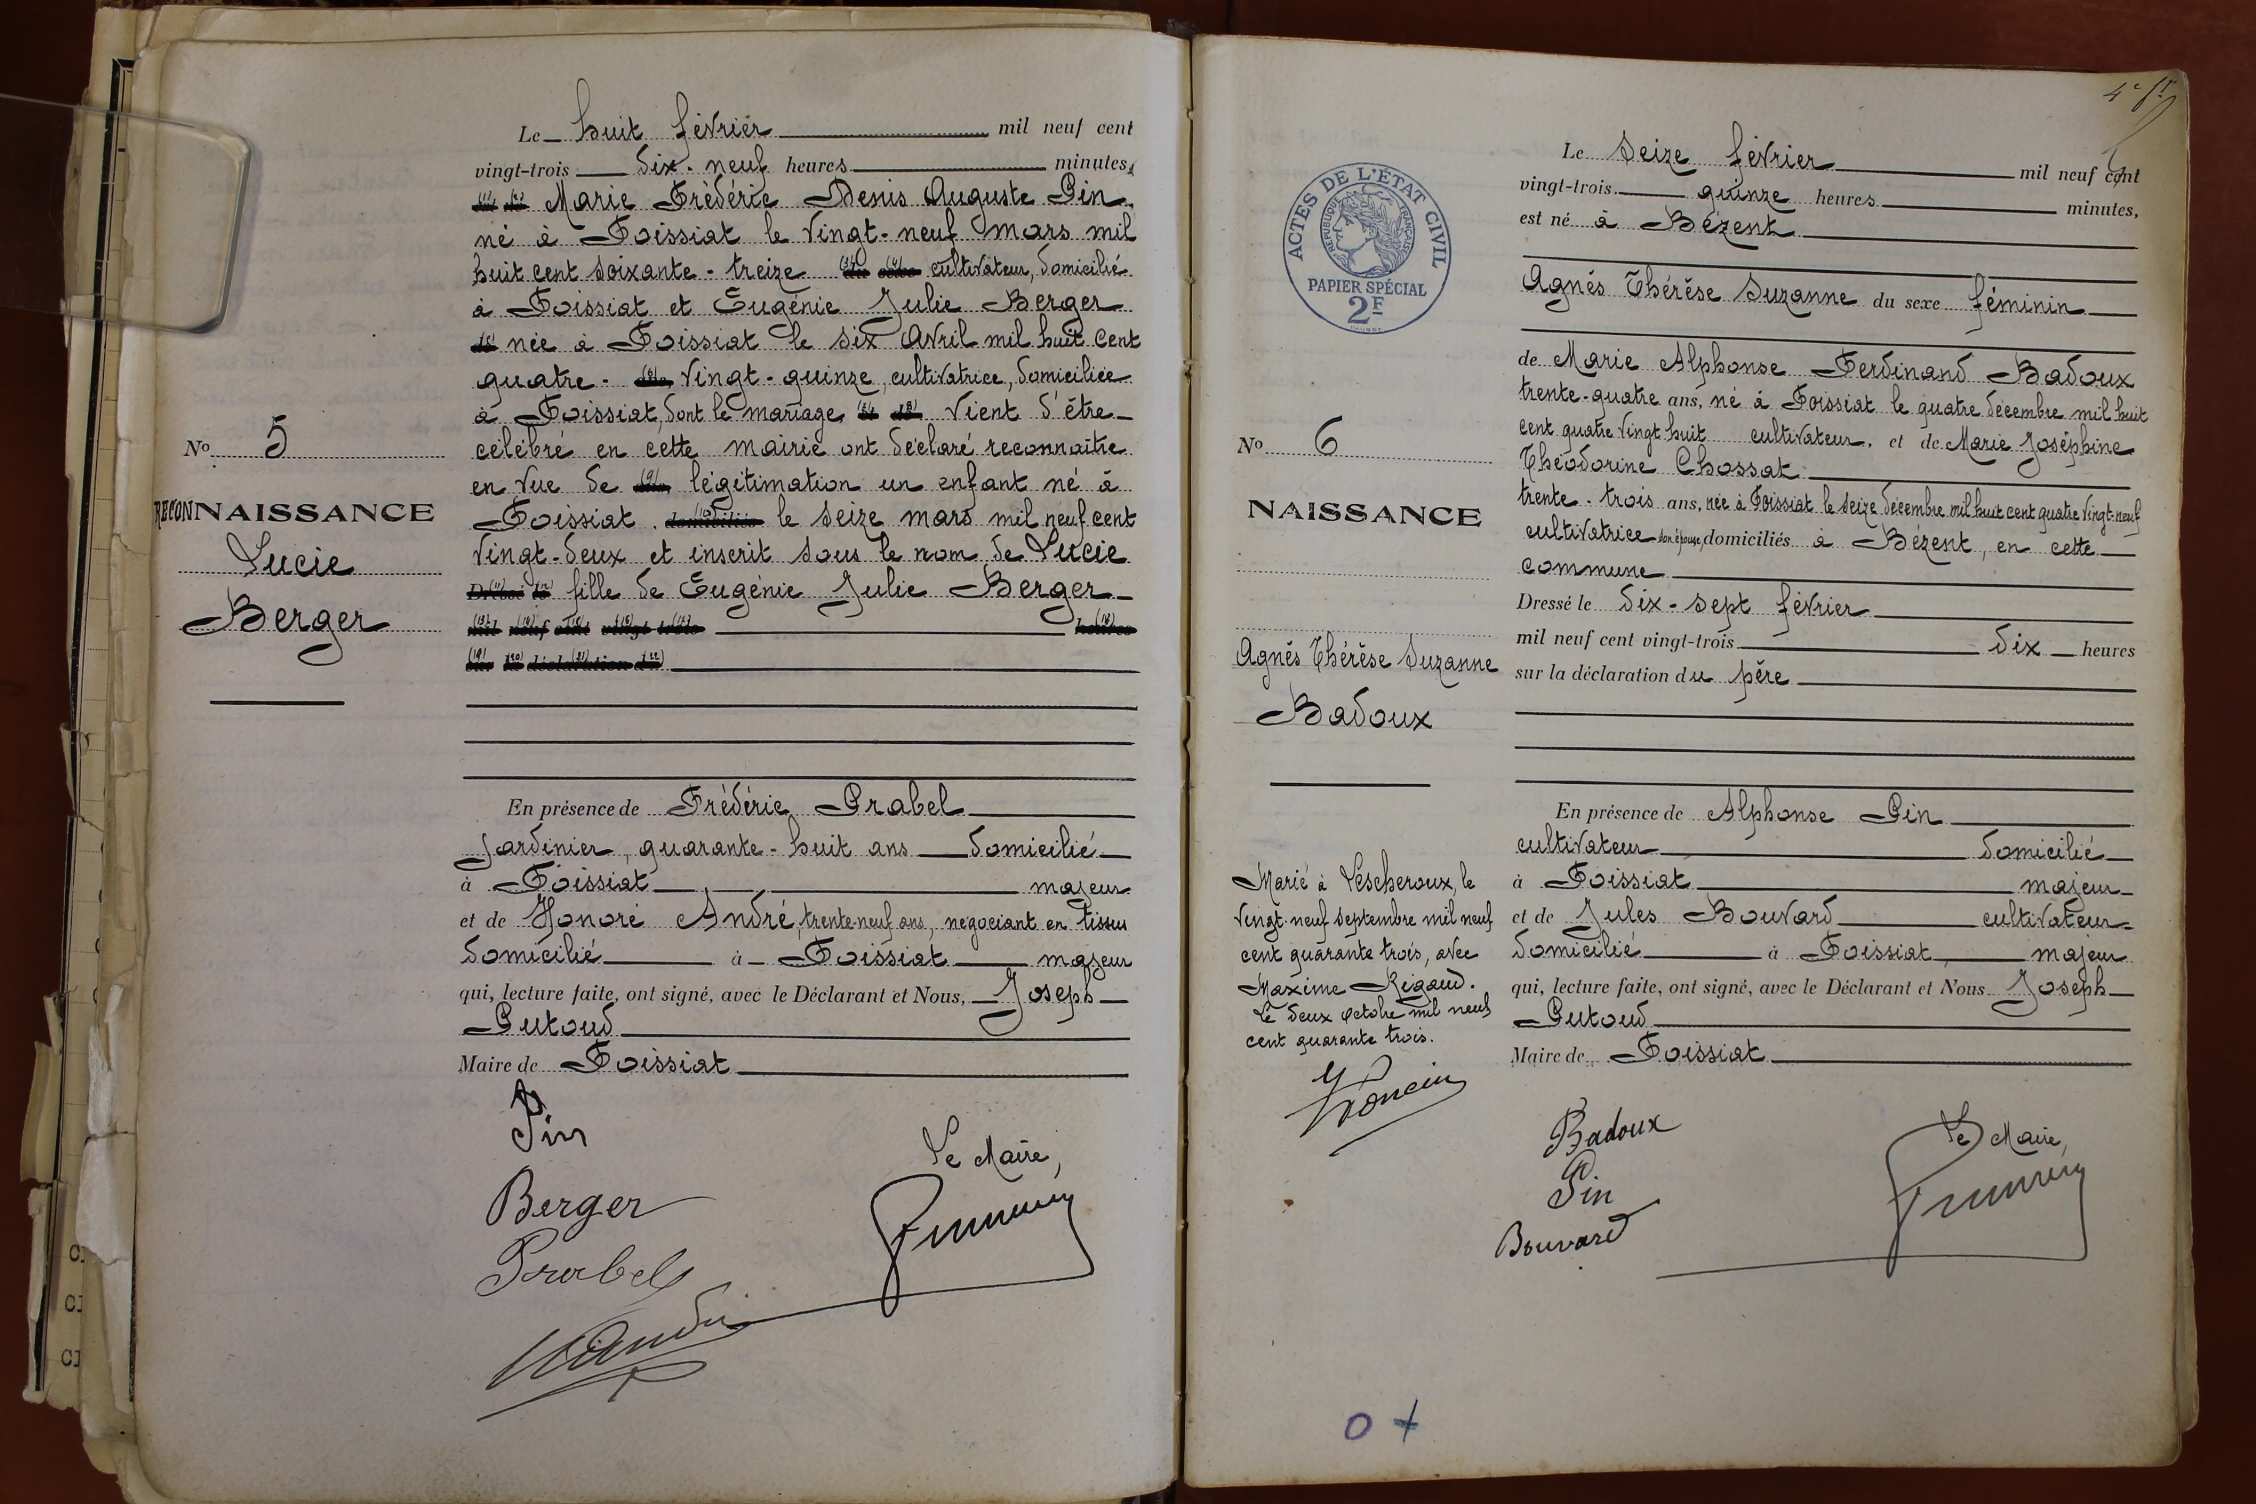 Le huit février mil neuf cent
vingt-trois dix-neuf heures minutes,
Marie Frédéric Denis Auguste Pin
né à Foissiat le vingt-neuf mars mil
huit cent soixante-treize cultivateur, domicilié
à Foissiat et Eugénie Julie Berger
née à Foissiat le six Avril mil huit cent
quatre-vingt-quinze, cultivatrice, domiciliée
à Foissiat, dont le mariage vient d'être
célébré en cette mairie ont déclaré reconnaître
en vue de légitimation un enfant né à
Foissiat. le seize mars mil neuf cent
vingt-deux et inscrit sous le nom de Lucie
fille de Eugénie Julie Berger
No 5
RECONNAISSANCE
Lucie
Berger
En présence de Frédéric Prabel
jardinier, quarante-huit ans domicilié
à Foissiat majeur
et de Honoré André, trente-neuf ans, négociant en tissus
domicilié à Foissiat majeur
qui, lecture faite, ont signé, avec le Déclarant et Nous, Joseph
Putoud
Maire de Foissiat
Pin
Le Maire,
Berger
Prabel
4e ft
ACTES DE L'ÉTAT CIVIL
RÉPUBLIQUE FRANÇAISE
PAPIER SPÉCIAL
2F
Le seize février mil neuf cent
vingt-trois quinze heures minutes,
est né à Bézent
Agnès Thérèse Suzanne du sexe féminin
de Marie Alphonse Ferdinand Badoux
trente-quatre ans, né à Foissiat le quatre décembre mil huit
cent quatre vingt huit cultivateur, et de Marie Joséphine
Théodorine Chossat
trente-trois ans, née à Foissiat le seize décembre mil huit cent quatre vingt-neuf
cultivatrice son épouse, domiciliés à Bézent, en cette
commune
Dressé le dix-sept février
mil neuf cent vingt-trois dix heures
sur la déclaration du père
No 6
NAISSANCE
Agnès Thérèse Suzanne
Badoux
En présence de Alphonse Pin
cultivateur domicilié
à Foissiat majeur
et de Jules Bouvard cultivateur
domicilié à Foissiat, majeur
qui, lecture faite, ont signé, avec le Déclarant et Nous Joseph
Putoud
Maire de Foissiat
Marié à Lescheroux, le
vingt-neuf septembre mil neuf
cent quarante trois, avec
Maxime Rigaud.
Le deux octobre mil neuf
cent quarante trois.
Badoux
Le Maire,
Pin
Bouvard